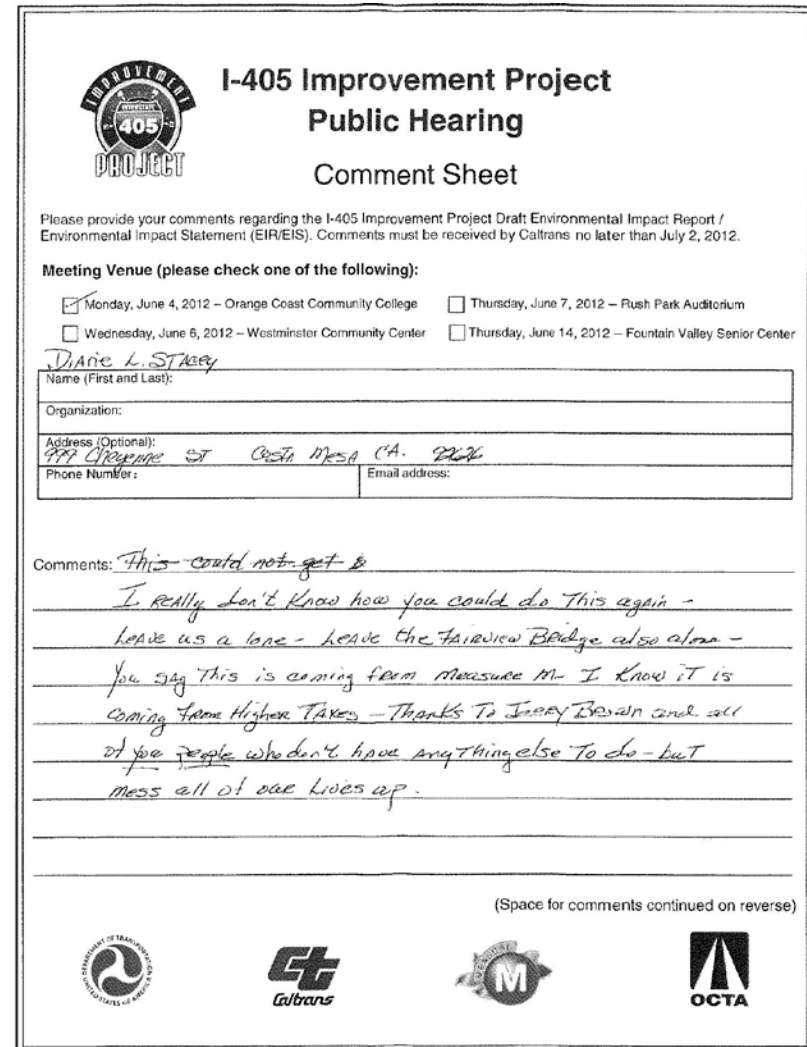 IMPROVEMENT
INTERSTATE
405
PROJECT
I-405 Improvement Project
Public Hearing
Comment Sheet
Please provide your comments regarding the I-405 Improvement Project Draft Environmental Impact Report /
Environmental Impact Statement (EIR/EIS). Comments must be received by Caltrans no later than July 2, 2012.
Meeting Venue (please check one of the following):
Monday, June 4, 2012 – Orange Coast Community College
Thursday, June 7, 2012 – Rush Park Auditorium
Wednesday, June 6, 2012 – Westminster Community Center
Thursday, June 14, 2012 – Fountain Valley Senior Center
Diane L. Stacey
Name (First and Last):
Organization:
Address (Optional):
999 Cheyenne ST Costa Mesa CA.
Phone Number:
Email address:
Comments: This could not get
I REAlly don't Know how you could do This again -
LeAve us a lone - LeAve the FAIRVIEW BRidge also alone -
You sAy This is coming from Measure M - I Know iT is
coming from Higher TAxes - Thanks To Jerry Brown and all
of you people who don't have any Thing else To do - buT
mess all of our Lives up.
(Space for comments continued on reverse)
DEPARTMENT OF TRANSPORTATION
UNITED STATES OF AMERICA
Caltrans
M
OCTA